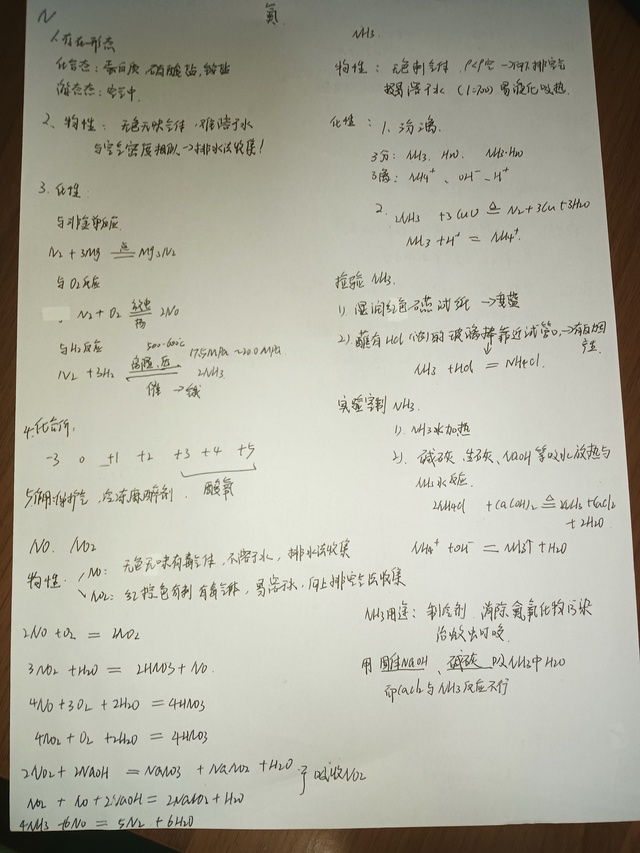 N
氮
1.存在形态
化合态：蛋白质、硝酸盐，铵盐
游离态：空气中
2、物性：无色无味气体，难溶于水
与空气密度相似→排水法收集！
3.化性：
与非金单反应
N₂ + 3Mg =点= Mg₃N₂
与O₂反应
N₂ + O₂ =放电= 2NO
与H₂反应
N₂ + 3H₂ 500-600℃ 高温、高压 催 2NH₃ 17.5MPa~200MPa
4.化合价：
-3 0 +1 +2 +3 +4 +5
酸氧
5.作用：保护气，冷冻麻醉剂
NO、NO₂
物性：NO：无色无味有毒气体，不溶于水，排水法收集
NO₂：红棕色有刺有毒气体，易溶于水，向上排空气法收集
2NO + O₂ = 2NO₂
3NO₂ + H₂O = 2HNO₃ + NO
4NO + 3O₂ + 2H₂O = 4HNO₃
4NO₂ + O₂ + 2H₂O = 4HNO₃
2NO₂ + 2NaOH = NaNO₃ + NaNO₂ + H₂O
NO₂ + NO + 2NaOH = 2NaNO₂ + H₂O
吸收NO₂
4NH₃ + 6NO = 5N₂ + 6H₂O
NH₃
物性：无色刺气体 ρ<ρ空→向下排空气
极易溶于水（1:700）易液化吸热
化性：1、三分三离
3分：NH₃、H₂O、NH₃·H₂O
3离：NH₄⁺、OH⁻、H⁺
2. 2NH₃ + 3CuO =△= N₂ + 3Cu + 3H₂O
NH₃ + H⁺ = NH₄⁺
检验NH₃
1) 湿润红色石蕊试纸→变蓝
2) 蘸有HCl（浓）的玻璃棒靠近试管口→有白烟产生
NH₃ + HCl = NH₄Cl
实验室制NH₃
1)、NH₃水加热
2)、碱石灰、生石灰、NaOH等吸水放热与NH₃水反应
2NH₄Cl + Ca(OH)₂ =△= 2NH₃ + CaCl₂ + 2H₂O
NH₄⁺ + OH⁻ = NH₃↑ + H₂O
NH₃用途：制冷剂 消除氮氧化物污染
治蚊虫叮咬
用固体NaOH、碱石灰吸NH₃中H₂O
CaCl₂与NH₃反应不行